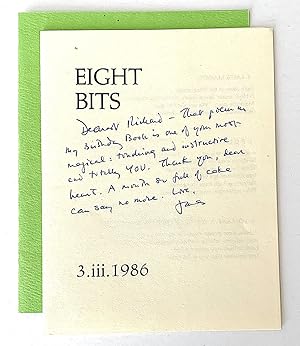 EIGHT
BITS
Dearest Richard – That poem in
my Birthday Book is one of your most
magical: touching and instructive
and totally YOU. Thank you, dear
heart. A mouth so full of cake
can say no more. Love,
James
3.iii.1986